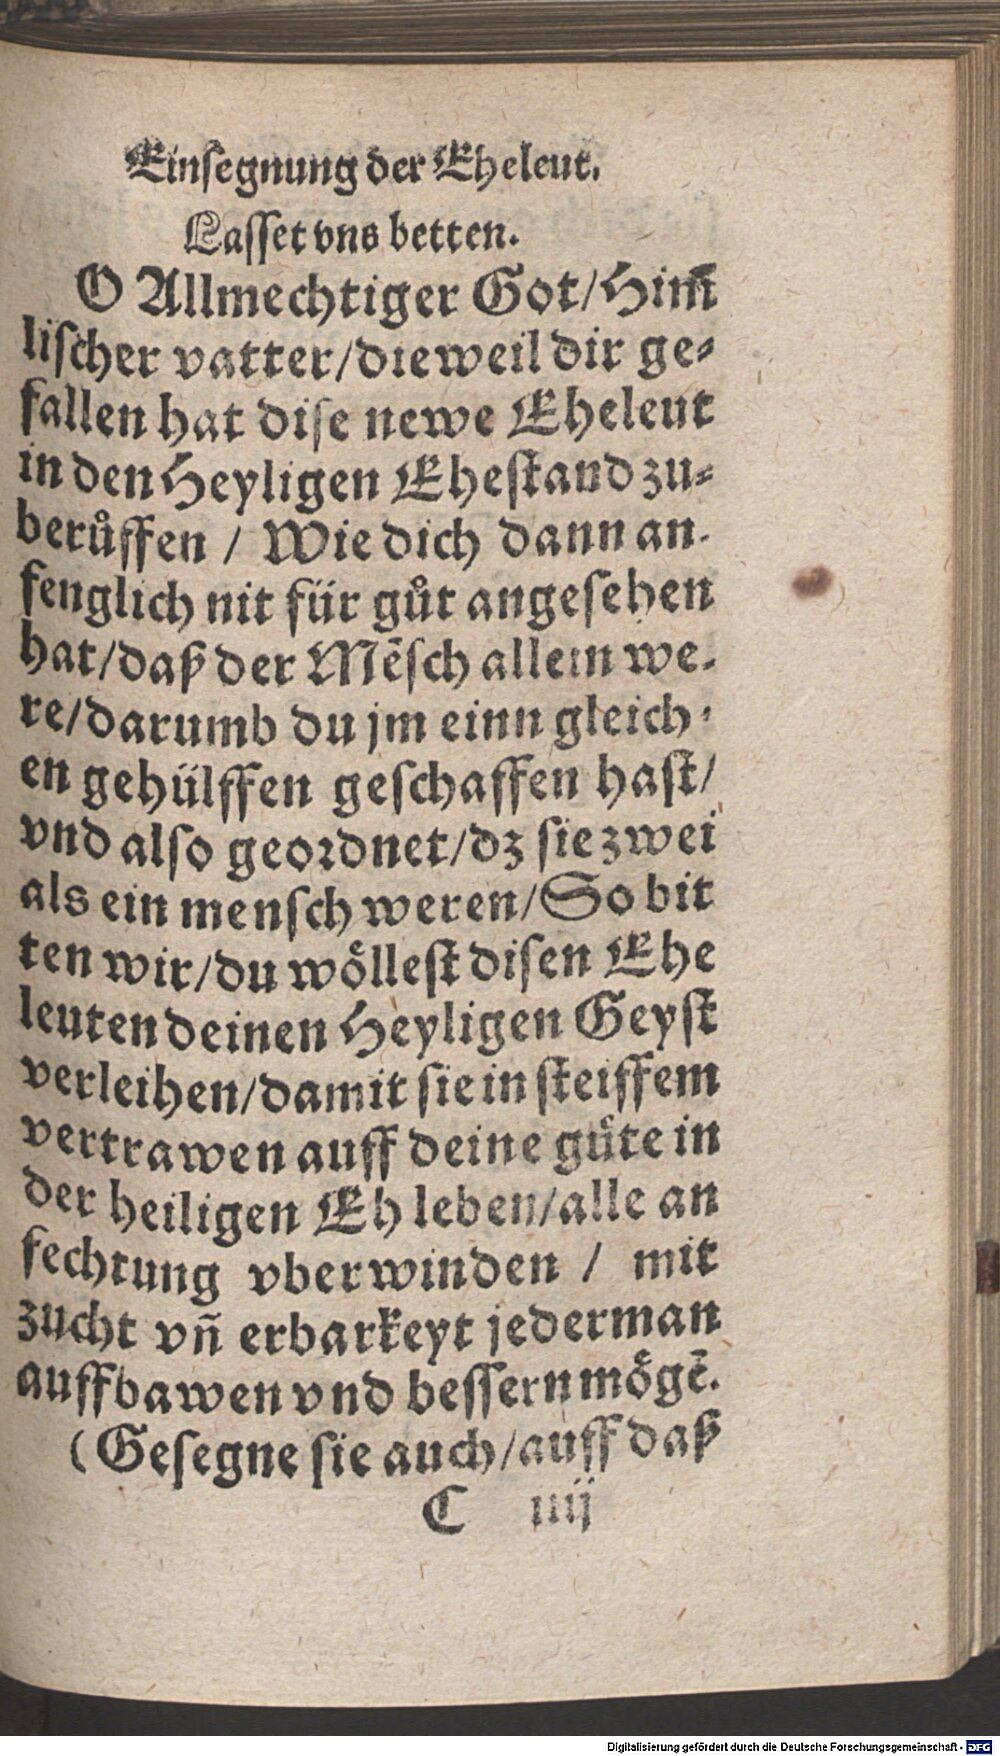 Einſegnung der Eheleut.
Laſſet vns betten.
O Allmechtiger Got/Him̃
liſcher vatter/dieweil dir ge⸗
fallen hat diſe newe Eheleut
in den Heyligen Eheſtand zu⸗
berůffen / Wie dich dann an⸗
fenglich nit für gůt angeſehen
hat/daß der Mẽſch allein we⸗
re/darumb du jm einn gleich⸗
en gehülffen geſchaffen haſt/
vnd alſo geoꝛdnet/dz ſie zwei
als ein menſch weren/So bit
ten wir/du woͤlleſt diſen Ehe
leuten deinen Heyligen Geyſt
verleihen/damit ſie in ſteiffem
vertrawen auff deine guͤte in
der heiligen Eh leben/alle an
fechtung vberwinden / mit
zucht vñ erbarkeyt jederman
auffbawen vnd beſſern moͤgẽ.
(Geſegne ſie auch/auff daß
C iiij
Digitalisierung gefördert durch die Deutsche Forschungsgemeinschaft - DFG